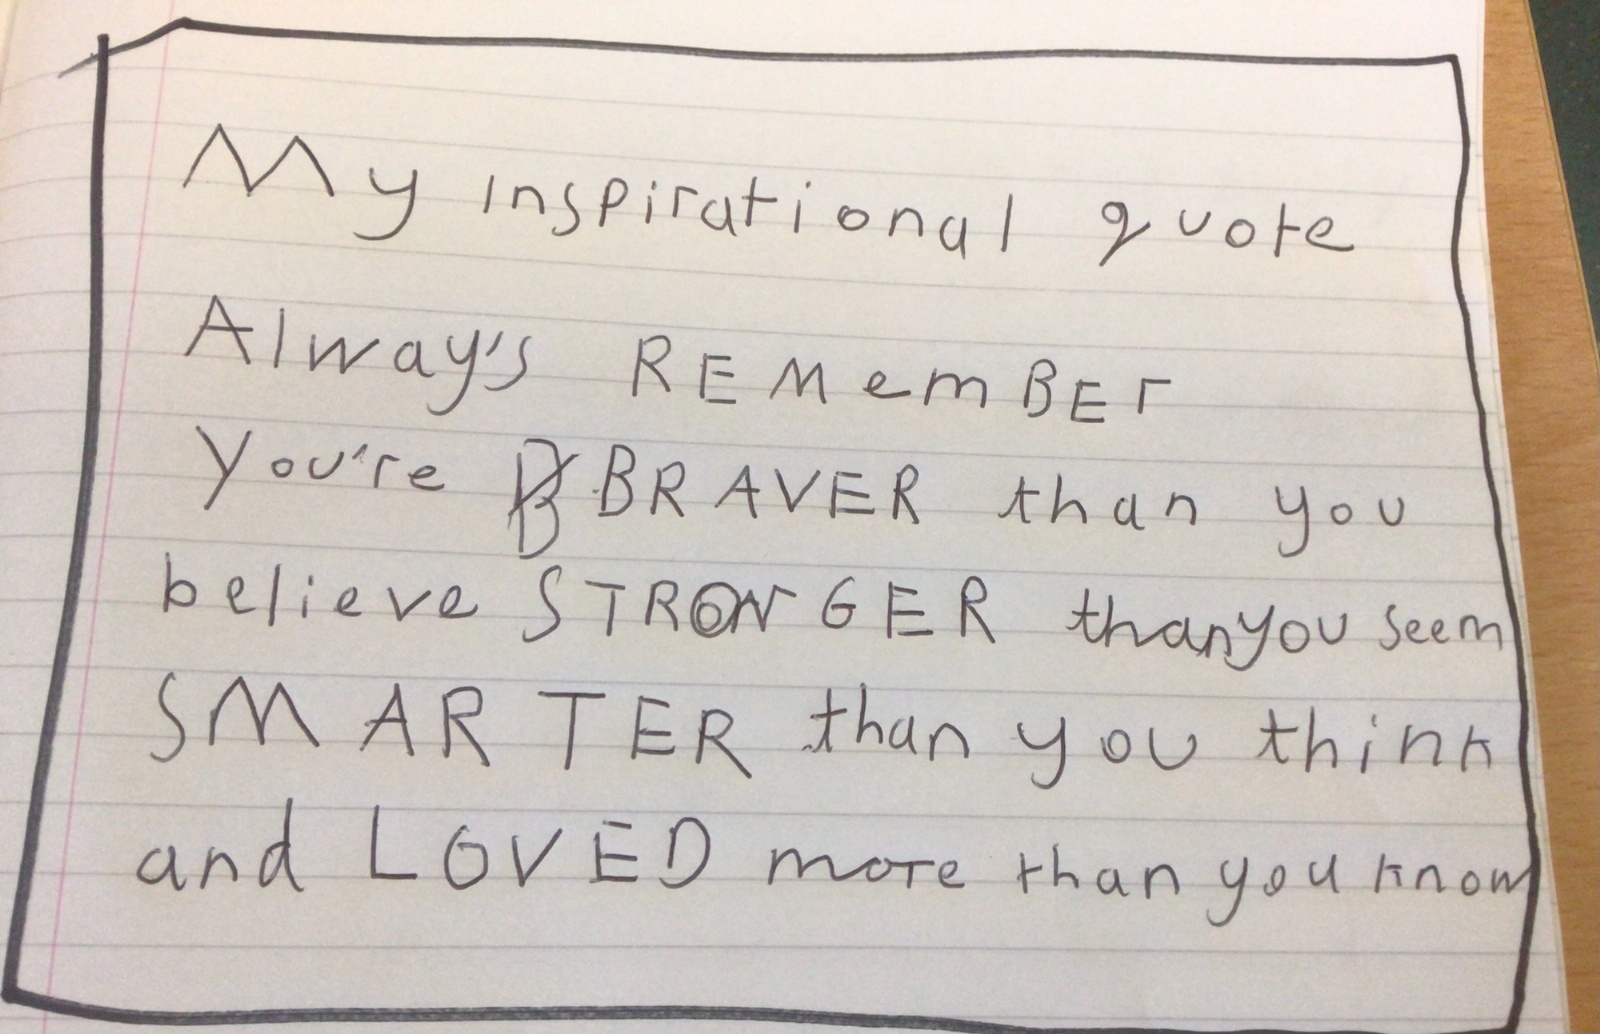 My inspirational quote
Always's REMemBEr
You're BRAVER than you
believe STRONGER than you seem
SMARTER than you think
and LOVED more than you know